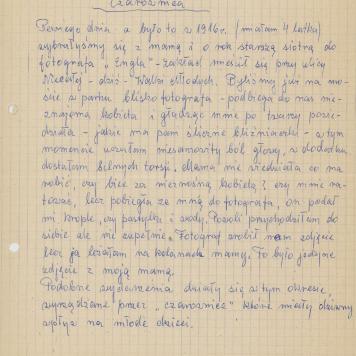 Czarownica
Pewnego dnia a było to w 1916r. /miałam 4 latka/
wybrałyśmy się z mamą i o rok starszą siostrą do
fotografa „Engla” – zakład mieścił się przy ulicy
- dziś - Walki Młodych. Byliśmy już na mo-
ście w parku blisko fotografa – podbiega do nas nie-
znajoma kobieta i gładząc mnie po twarzy powie-
działa – jakie ma pani śliczne bliźniaczki – w tym
momencie dostałam niesamowity ból głowy, w dodatku
dostałam silnych torsji. Mama nie wiedziała co ma
robić, czy biec za nieznaną kobietą? czy mnie ra-
tować, lecz pobiegła ze mną do fotografa, on podał
mi krople, czy pastylkę i wody. Powoli przychodziłam do
siebie ale nie zupełnie. Fotograf zrobił nam zdjęcie
lecz ja leżałam na kolanach mamy. To było jedyne
zdjęcie z moją mamą.
Podobne wydarzenia działy się w tym okresie,
wyrządzane przez „czarownice” które miały dziwny
wpływ na młode dzieci.